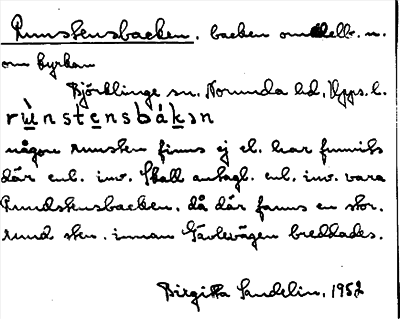 Runstensbacken. backen omedelb. n.
om kyrkan
Björklinge sn. Norunda hd, Upps. l.
rùnstensbákən
någon runsten finns ej el. har funnits
där enl. inv. Skall antagl. enl. inv. vara
Rundstensbacken, då där fanns en stor,
rund sten. innan Gävlevägen breddades.
Birgitta Sundelin, 1952